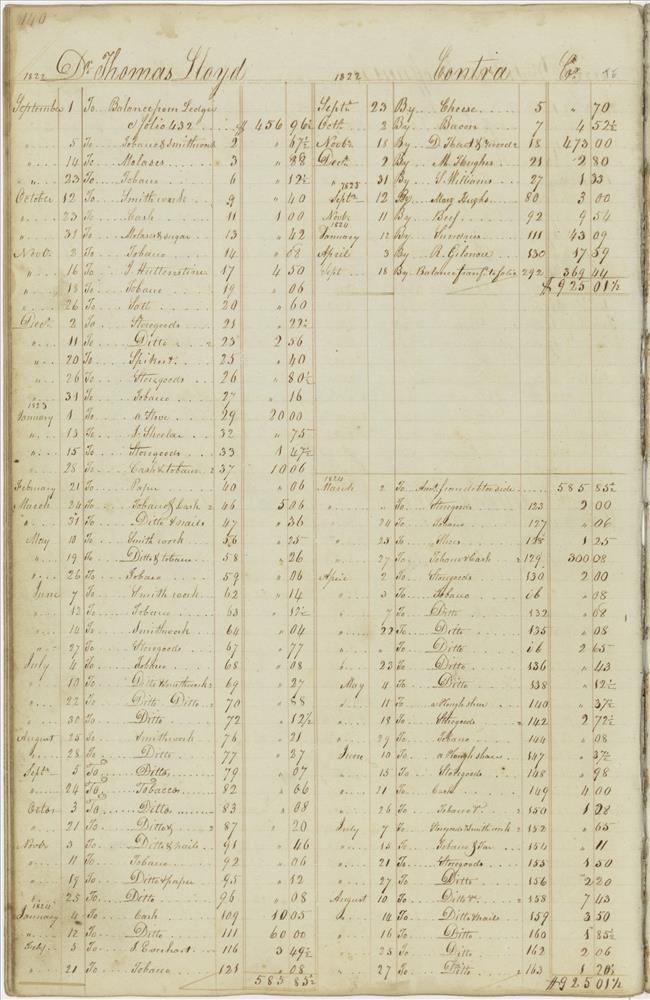 140
1822 Dr. Thomas Lloyd
September 1 To Balance from Ledger
Folio 432 $ 456 96½
" 5 To Tobacco & smithwork 2 " 67½
" 14 To Molases 3 " 88
" 23 To Tobacco 6 " 12½
October 12 To Smith work 9 " 40
" 23 To Cash 11 1 00
" 31 To Molases & sugar 13 " 42
Novbr 2 To Tobacco 14 " 08
" 16 To J. 17 4 50
" 18 To Tobacco 19 " 06
" 26 To Salt 20 " 60
Decr 2 To Storegoods 21 " 22½
" 11 To Ditto 23 2 56
" 20 To Spikes &c 25 " 40
" 26 To Storegoods 26 " 80½
" 31 To Tobacco 27 " 16
1823
January 1 To a Stove 29 20 00
" 13 To J. 32 " 75
" 15 To Storegoods 33 1 47½
" 28 To Cash & tobacco 37 10 06
February 21 To Paper 40 " 06
March 24 To Tobacco & cash 46 5 06
" 31 To Ditto & nails 47 " 36
May 10 To Smith work 56 " 25
" 19 To Ditto & tobacco 58 " 26
" 26 To Tobacco 59 " 06
June 7 To Smith work 62 " 14
" 12 To Tobacco 63 " 12½
" 14 To Smithwork 64 " 04
" 27 To Storegoods 67 " 77
July 4 To Tobacco 68 " 08
" 10 To Ditto & smithwork 69 " 27
" 22 To Ditto Ditto 70 " 88
" 30 To Ditto 72 " 12½
August 25 To Smithwork 76 " 21
" 28 To Ditto 77 " 27
Septr 5 To Ditto 79 " 07
" 24 To Tobacco 82 " 06
Octor 3 To Ditto 83 " 08
" 21 To Ditto & 87 " 20
Novbr 3 To Ditto & nails 91 " 46
" 11 To Tobacco 92 " 06
" 19 To Ditto & paper 95 " 12
" 25 To Ditto 96 " 08
1824
January 4 To Cash 109 10 05
" 12 To Ditto 111 60 00
Feby 5 To J. Everhart 116 3 49½
" 21 To Tobacco 121 " 08
585 85½
1822 Contra Cr.
Septr 23 By Cheese 5 " 70
Octbr 2 By Bacon 7 4 52½
Novbr 18 By D. 18 473 00
Decr 2 By M. Hughes 21 2 80
" 31 By S. Williams 27 1 33
1823
Septr 12 By Mary Hughs 80 3 00
Novbr 11 By Beef 92 9 54
1824
January 12 By Sundries 111 43 09
April 3 By R. Gilmore 130 17 59
Sept 18 By Balance transfd to folio 292 369 44
$ 925 01½
1824
March 2 To Amt from debtor side 585 85½
" " To Storegoods 123 2 00
" 24 To Tobacco 127 " 06
" 25 To Shoes 128 1 25
" 27 To Tobacco & Cash 129 300 08
April 2 To Storegoods 130 2 00
" 3 To Tobacco " 08
" 7 To Ditto 132 " 08
" 22 To Ditto 135 " 08
" " To Ditto 2 65
" 23 To Ditto 136 " 43
May 4 To Ditto 138 " 12½
" 11 To a Plough shear 140 " 37½
" 18 To Storegoods 142 2 72½
" 29 To Tobacco 144 " 08
June 10 To a Plough share 147 " 37½
" 15 To Storegoods 148 " 98
" 21 To Cash 149 4 00
" 26 To Tobacco &c 150 1 28
July 7 To & smithwork 152 " 65
" 15 To Tobacco & Tar 154 " 11
" 21 To Storegoods 155 1 50
" 27 To Ditto 156 2 20
August 10 To Ditto &c 158 7 43
" 14 To Ditto & nails 159 3 50
" 16 To Ditto 160 1 85½
" 25 To Ditto 162 2 06
" 27 To Ditto 163 1 20½
$ 925 01½